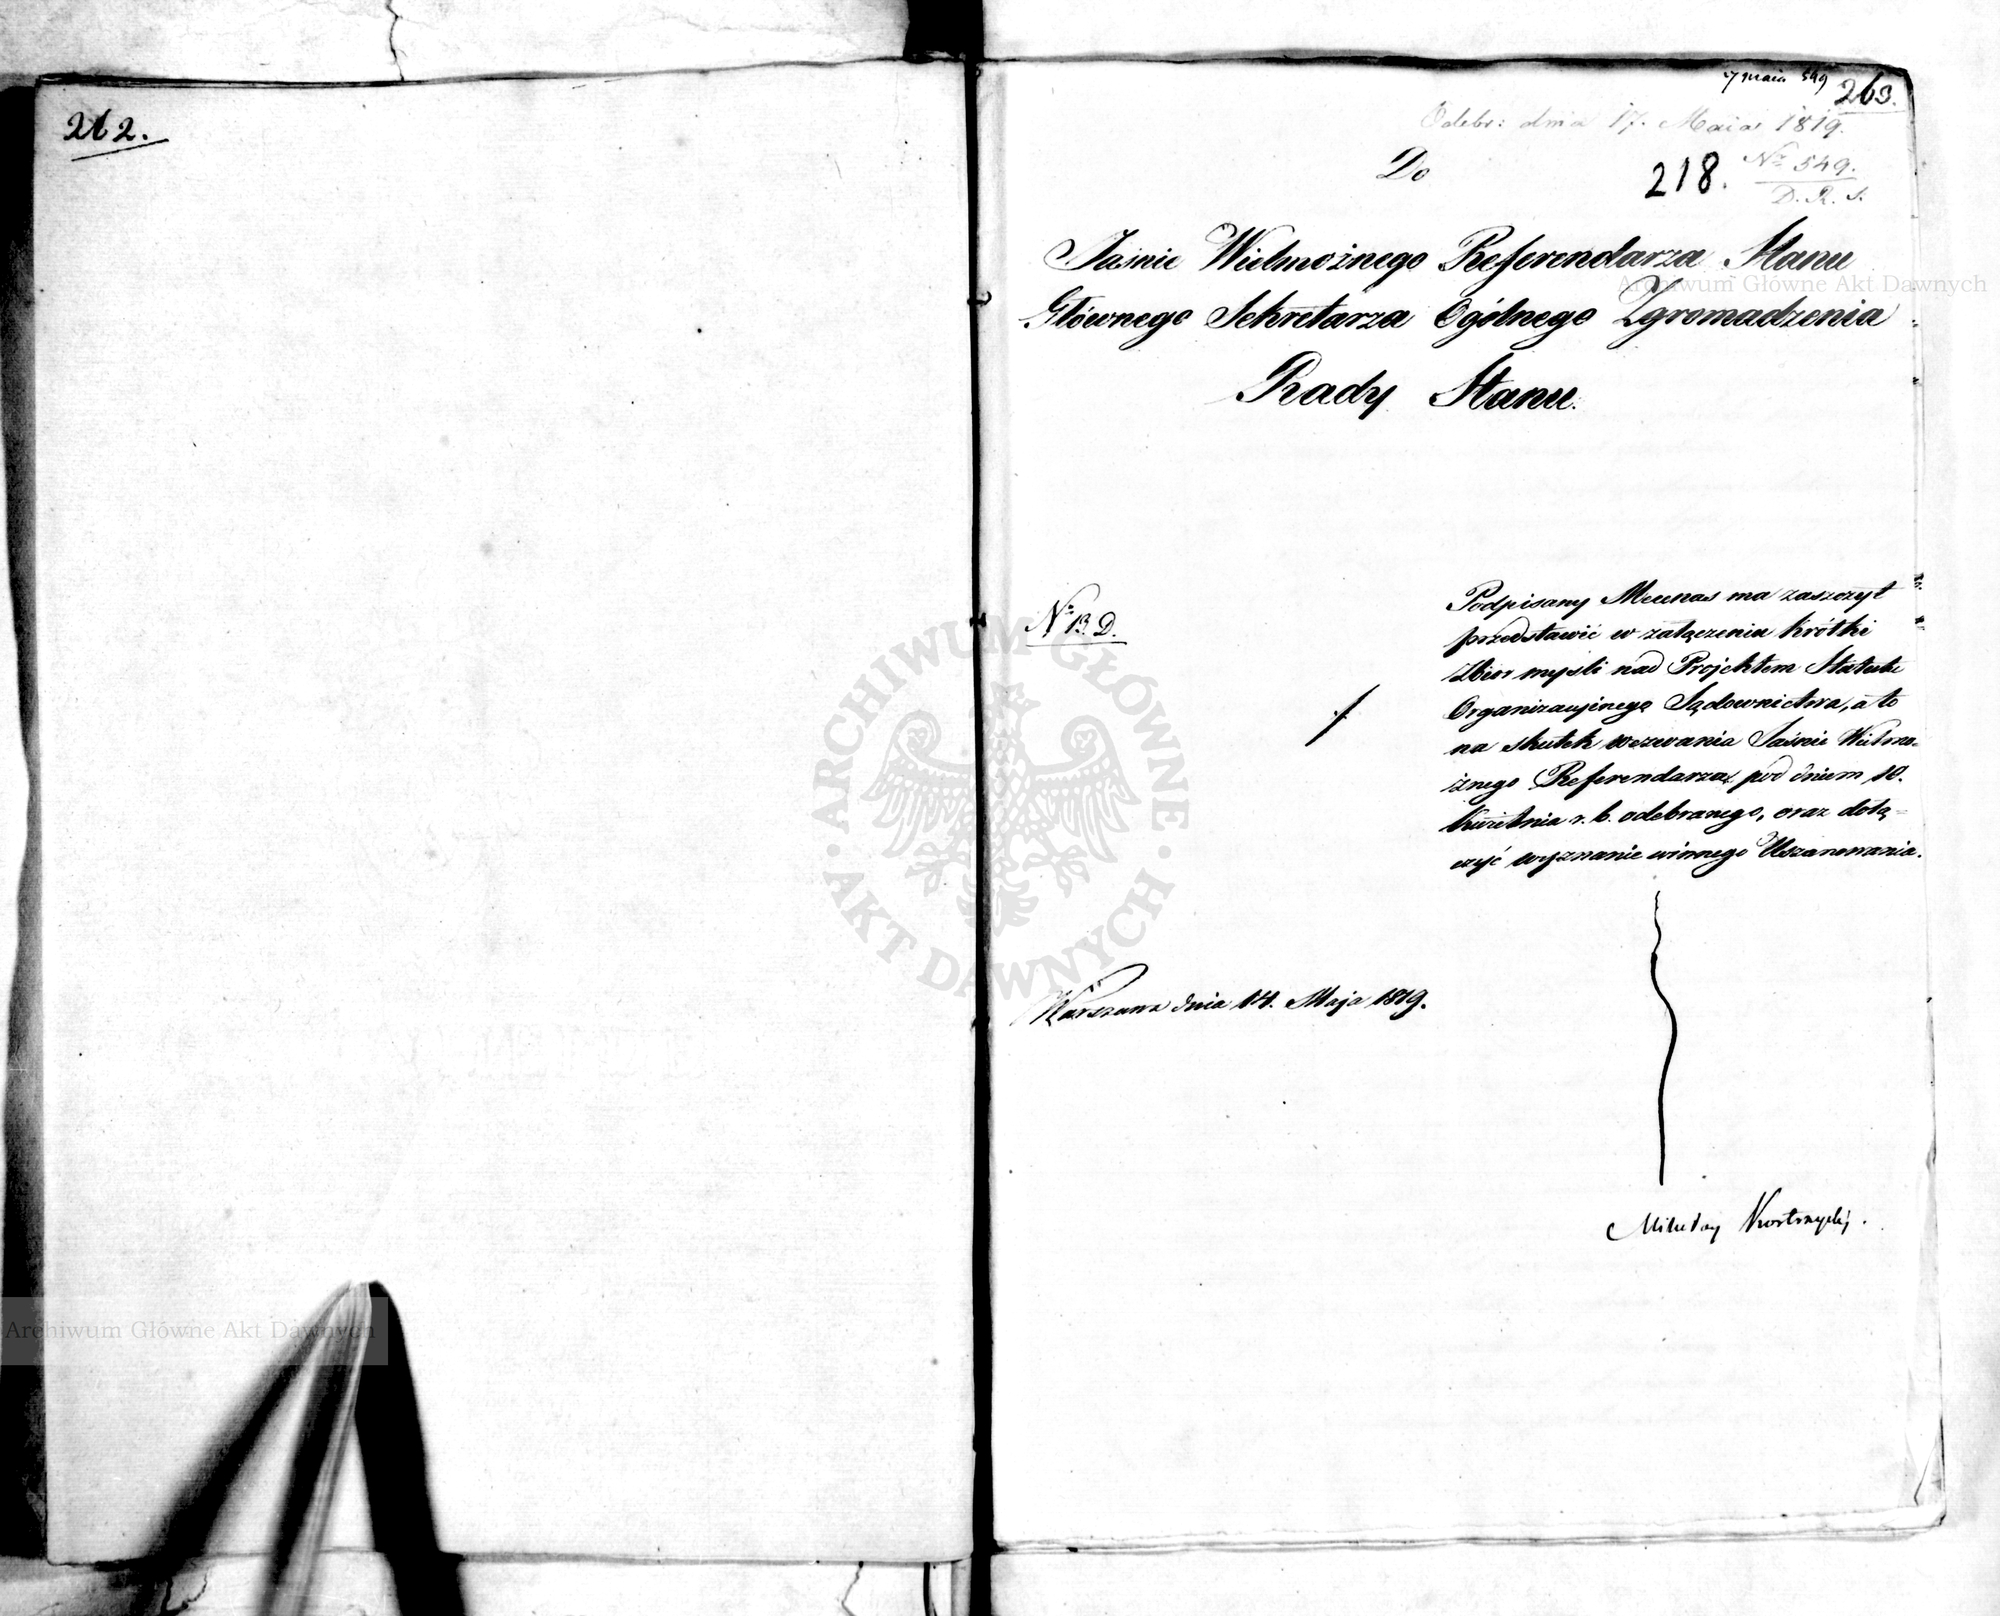 262.
7 maia 549
263.
Odebr: dnia 17. Maia 1819.
Do
218.
Nr 549.
D. R. S.
Jaśnie Wielmożnego Referendarza Stanu
Głównego Sekretarza Ogólnego Zgromadzenia
Rady Stanu.
Nr 13. D.
Podpisany Mecenas ma zaszczyt
przedstawić w załączeniu krótki
Zbior myśli nad Projektem Statutu
Organizacyjnego Sądownictwa, a to
na skutek wezwania Jaśnie Wielmo-
żnego Referendarza pod dniem 10.
Kwietnia r. b. odebranego, oraz dołą-
czyć wyznanie winnego Uszanowania.
Warszawa dnia 14. Maja 1819.
Mikołay
Archiwum Główne Akt Dawnych
ARCHIWUM GŁÓWNE
· AKT DAWNYCH ·
Archiwum Główne Akt Dawnych